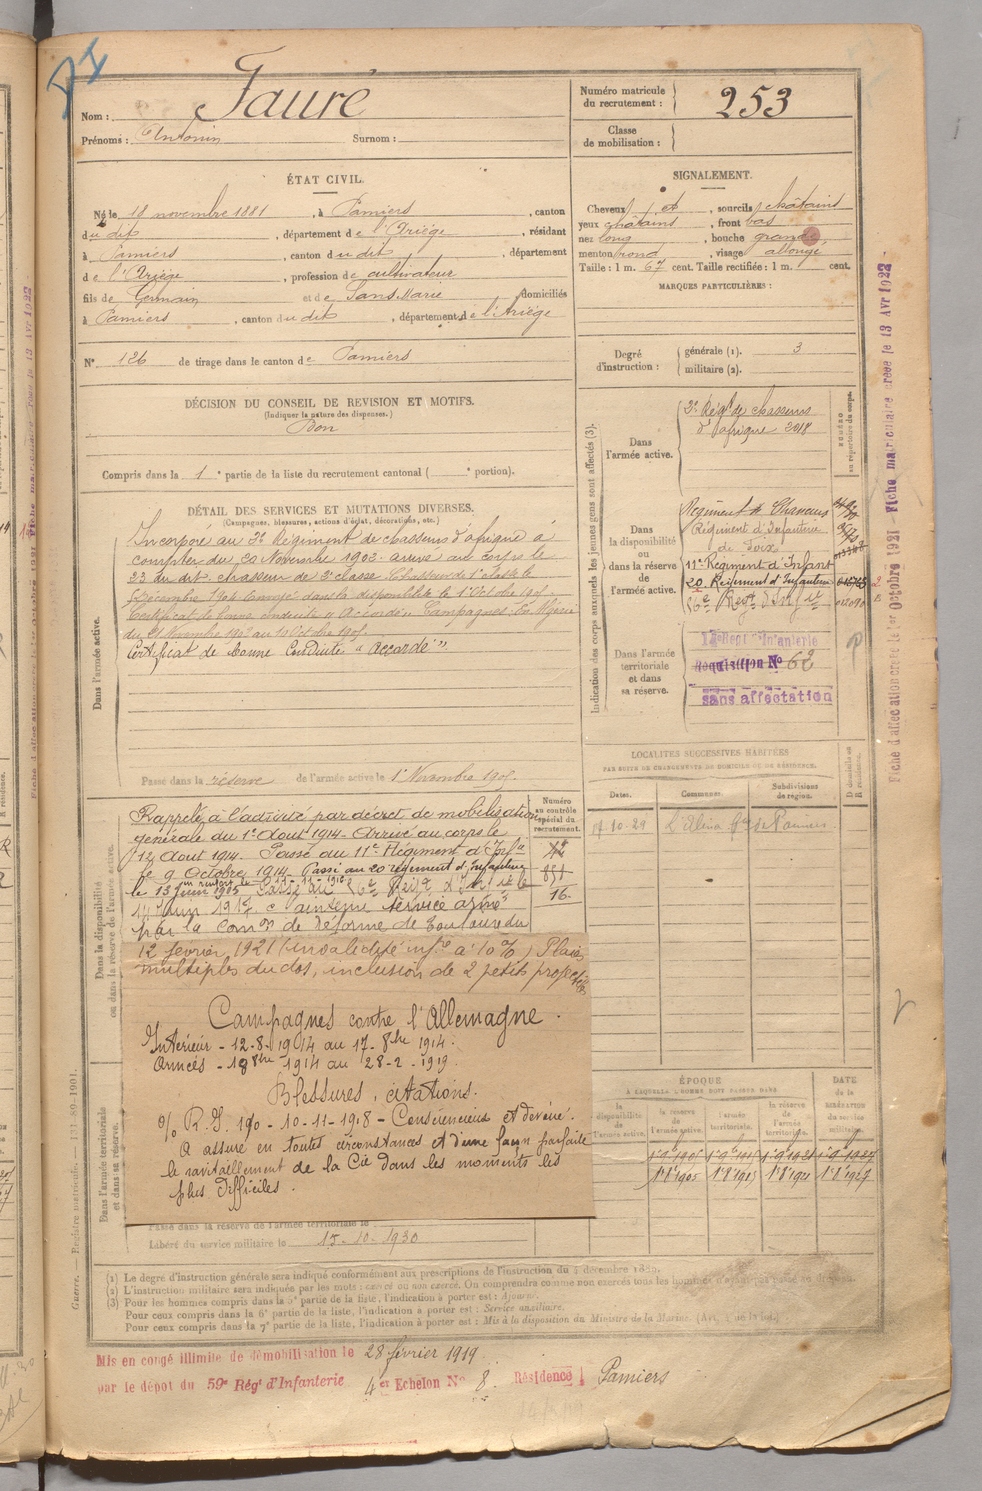 Nom : Faure
Prénoms : Antonin Surnom :
Numéro matricule du recrutement : 253
Classe de mobilisation :
ÉTAT CIVIL.
Né le 18 novembre 1881, à Pamiers, canton
du dit, département de l'Ariège, résidant
à Pamiers, canton du dit, département
de l'Ariège, profession de cultivateur
fils de Germain et de Sans Marie domiciliés
à Pamiers, canton du dit, département de l'Ariège
N° 126 de tirage dans le canton de Pamiers
SIGNALEMENT.
Cheveux et, sourcils châtains
yeux châtains, front bas
nez long, bouche grande
menton rond, visage allongé
Taille : 1 m. 67 cent. Taille rectifiée : 1 m. cent.
MARQUES PARTICULIÈRES :
Degré d'instruction : générale (1). 3
militaire (2).
DÉCISION DU CONSEIL DE REVISION ET MOTIFS.
(Indiquer la nature des dispenses.)
Bon
Compris dans la 1e partie de la liste du recrutement cantonal ( e portion).
DÉTAIL DES SERVICES ET MUTATIONS DIVERSES.
(Campagnes, blessures, actions d'éclat, décorations, etc.)
Dans l'armée active.
Incorporé au 2e Régiment de chasseurs d'afrique à
compter du 20 Novembre 1902. arrivé au corps le
23 du dit. chasseur de 2e classe Chasseur de 1e classe le
Décembre 1904 Envoyé dans la disponibilité le 1 Octobre 1905.
Certificat de bonne conduite "Accordé". Campagnes: En Algérie
du 21 Novembre 1902 au 10 Octobre 1905.
Certificat de bonne Conduite "Accordé"
Passé dans la réserve de l'armée active le 1er Novembre 1905.
Indication des corps auxquels les jeunes gens sont affectés (3).
NUMÉRO au répertoire du corps.
Dans l'armée active.
2e Régt de chasseurs
d'afrique 2018
Dans la disponibilité ou dans la réserve de l'armée active.
Régiment de Chasseurs
Régiment d'Infanterie
de Foix
11e Régiment d'Infant
20 Régiment d'Infanterie
Dans l'armée territoriale et dans sa réserve.
Réquisition No 62
sans affectation
LOCALITÉS SUCCESSIVES HABITÉES
PAR SUITE DE CHANGEMENTS DE DOMICILE OU DE RÉSIDENCE.
Dates. Communes. Subdivisions de région. D domicile ou R résidence.
17-10-29
Dans la disponibilité ou dans la réserve de l'armée active.
Numéro au contrôle spécial du recrutement.
851
16.
Rappelé à l'activité par décret de mobilisation
générale du 1er Août 1914 - Arrivé au corps le
12 Août 1914. Passé au 11e Régiment d'Infie
le 9 Octobre 1914 - Passé au 20 régiment d'Infanterie
par la Comon de Réforme de Toulouse du
12 février 1921 (invalidité infre à 10%) Plaies
multiples du dos, inclusion de 2 petits projectiles
Campagnes contre l'Allemagne.
Intérieur - 12-8-1914 au 17-8bre 1914.
Armées - 18 8bre 1914 au 28-2-1919
Blessures, citations.
O/ R.I. 190 - 10-11-1918 - Consciencieux et dévoué.
A assuré en toutes circonstances et d'une façon parfaite
le ravitaillement de la Cie dans les moments les
plus difficiles.
Dans l'armée territoriale et dans sa réserve.
Passé dans la réserve de l'armée territoriale le
Libéré du service militaire le 15-10-1930
ÉPOQUE
À LAQUELLE L'HOMME DOIT PASSER DANS
la disponibilité de l'armée active. la réserve de l'armée active. l'armée territoriale. la réserve de l'armée territoriale.
DATE de la LIBÉRATION DU SERVICE militaire.
Guerre. — Registre matricule. —
(1) Le degré d'instruction générale sera indiqué conformément aux prescriptions de l'instruction du 4 décembre 1889.
(2) L'instruction militaire sera indiquée par les mots : exercé ou non exercé. On comprendra comme non exercés tous les hommes n'ayant pas passé au drapeau.
(3) Pour les hommes compris dans la 5e partie de la liste, l'indication à porter est : Ajourné.
Pour ceux compris dans la 6e partie de la liste, l'indication à porter est : Service auxiliaire.
Pour ceux compris dans la 7e partie de la liste, l'indication à porter est : Mis à la disposition du Ministre de la Marine.
Mis en congé illimité de démobilisation le 28 février 1919.
par le dépot du 59e Régt d'Infanterie 4er Echelon No 8. Résidence : Pamiers
Fiche d'affectation créée le 1er Octobre 1921 - Fiche matriculaire créée le 13 Avr 1922 -